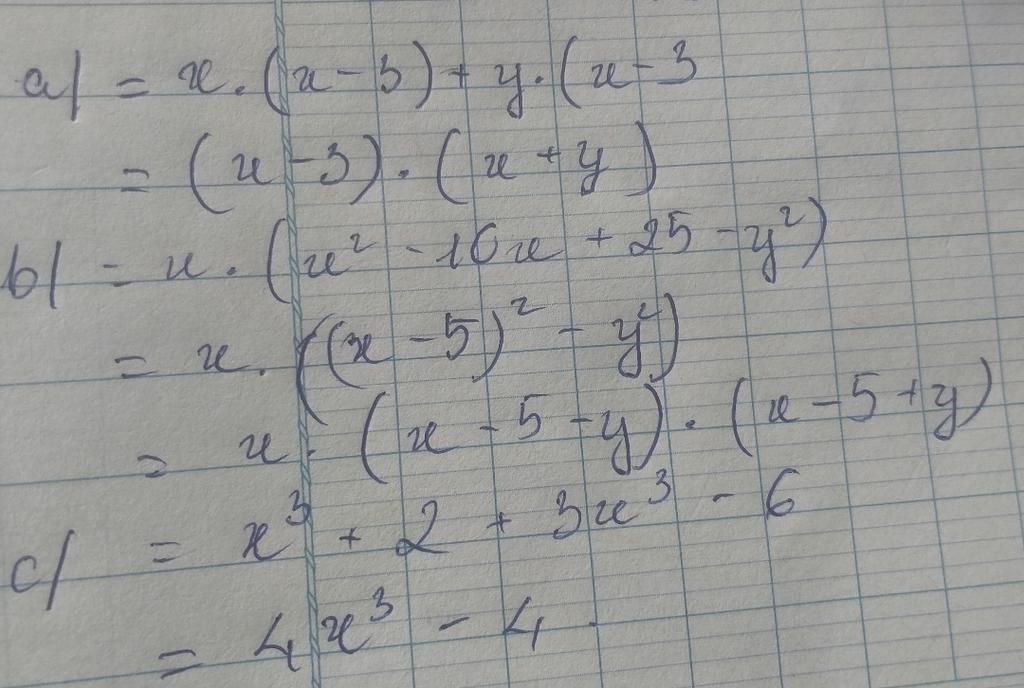 a/ = x.(x-3)+y.(x-3
= (x-3).(x+y)
b/ = x.(x²-10x+25-y²)
= x.((x-5)²-y²)
= x.(x-5-y).(x-5+y)
c/ = x³+2+3x³-6
= 4x³-4